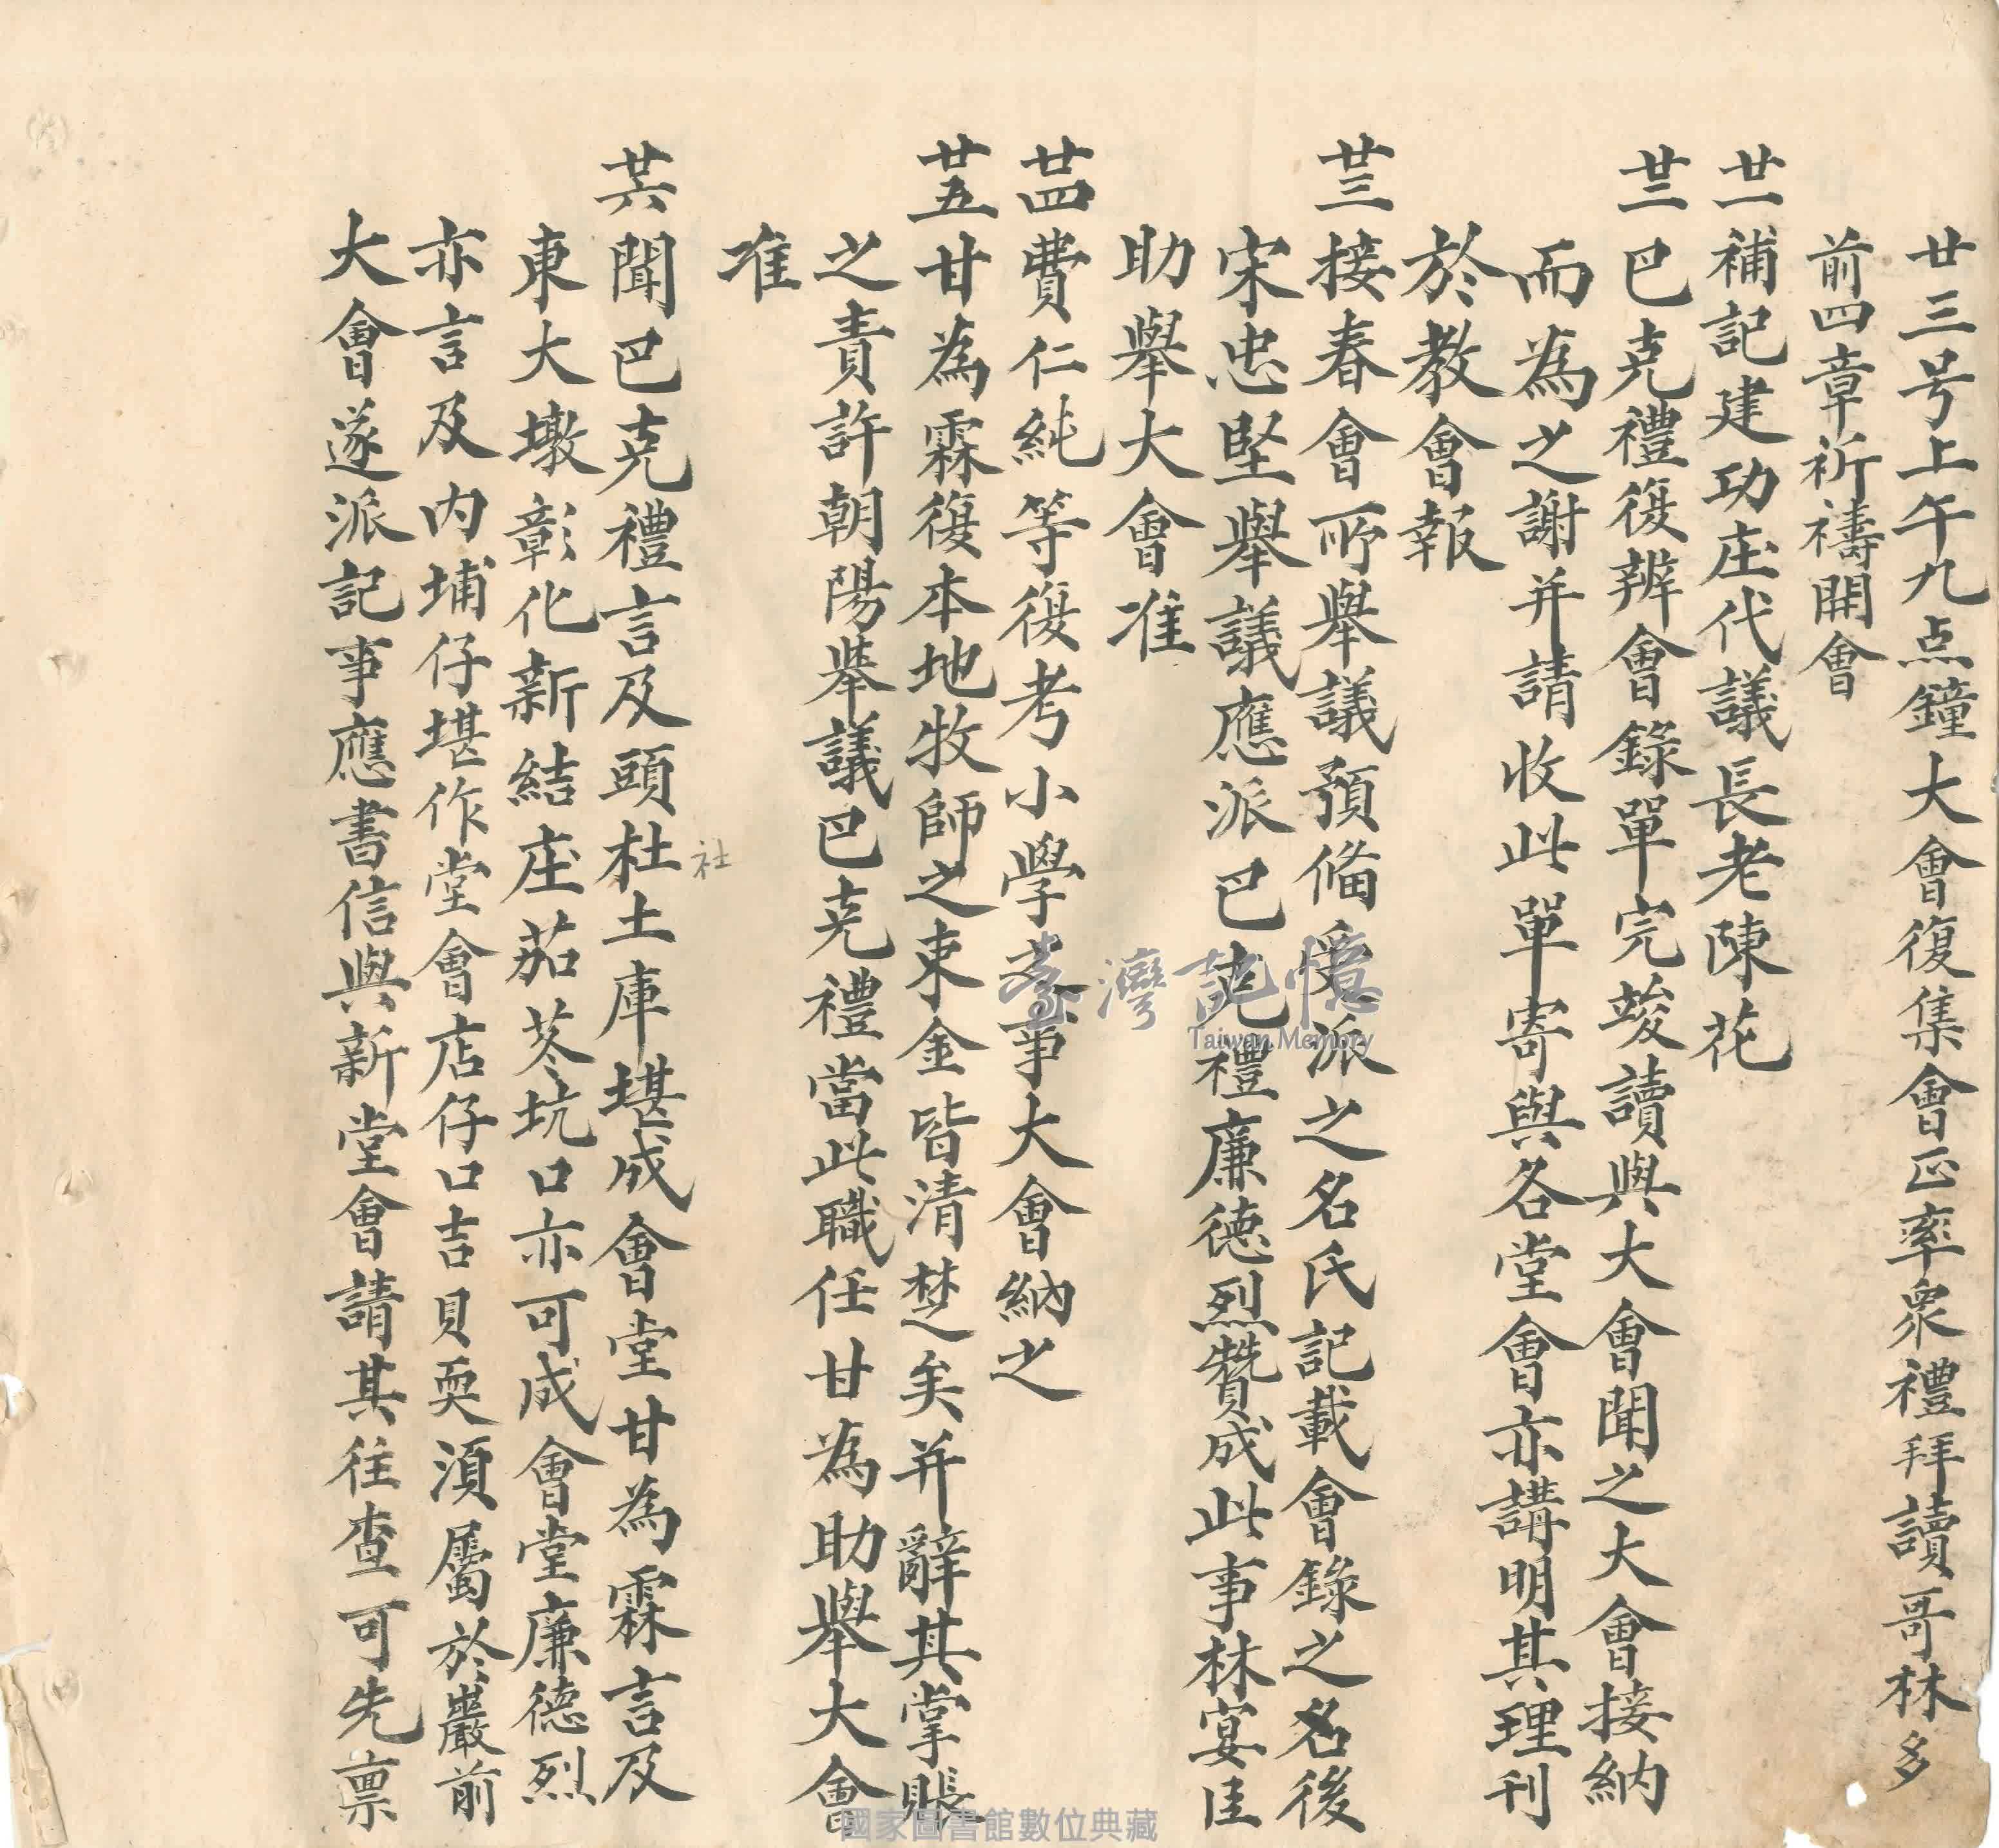 廿三号上午九点鐘大會復集會正率衆禮拜讀哥林多
前四章祈禱開會
廿一補記建功庄代議長老陳花
廿二巴克禮復辨會錄單完竣讀與大會聞之大會接納
而為之謝并請收此單寄與各堂會亦講明其理刊
於教會報
廿三接春會所舉議預俻受派之名氏記載會錄之名後
宋忠堅舉議應派巴克禮廉德烈贊成此事林宴臣
助舉大會准
廿四費仁純等復考小學之事大會納之
廿五甘為霖復本地牧師之束金皆清楚矣并辭其掌賬
之責許朝陽舉議巴克禮當此職任甘為助舉大會
准
廿六聞巴克禮言及頭杜土庫堪成會堂甘為霖言及
社
東大墩彰化新結庄茄苳坑口亦可成會堂廉德烈
亦言及內埔仔堪作堂會店仔口吉貝耍須屬於嚴前
大會遂派記事應書信與新堂會請其往查可先禀
臺灣記憶
Taiwan Memory
國家圖書館數位典藏